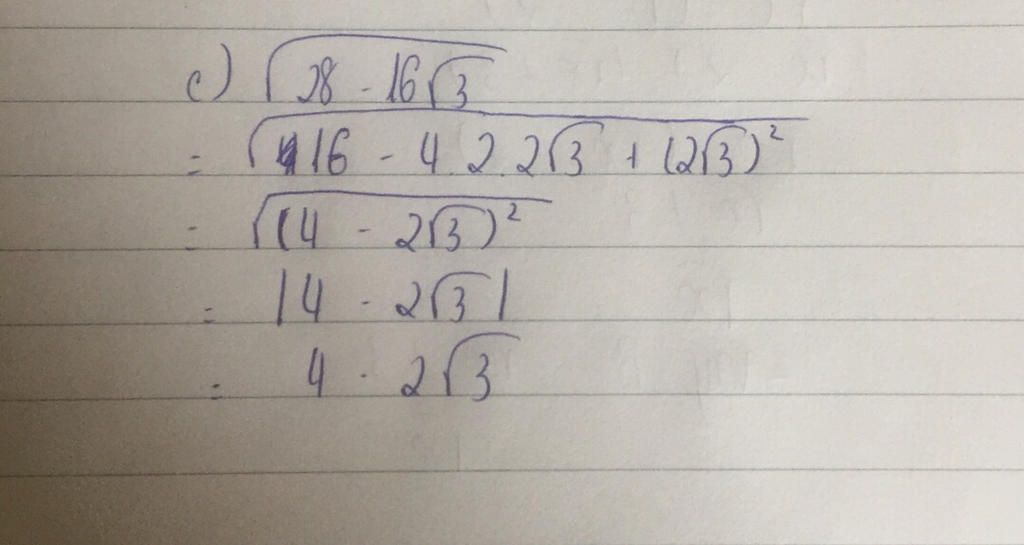 c) √(28 - 16√3)
= √(16 - 4.2.2√3 + (2√3)²)
= √((4 - 2√3)²)
= |4 - 2√3|
= 4 - 2√3